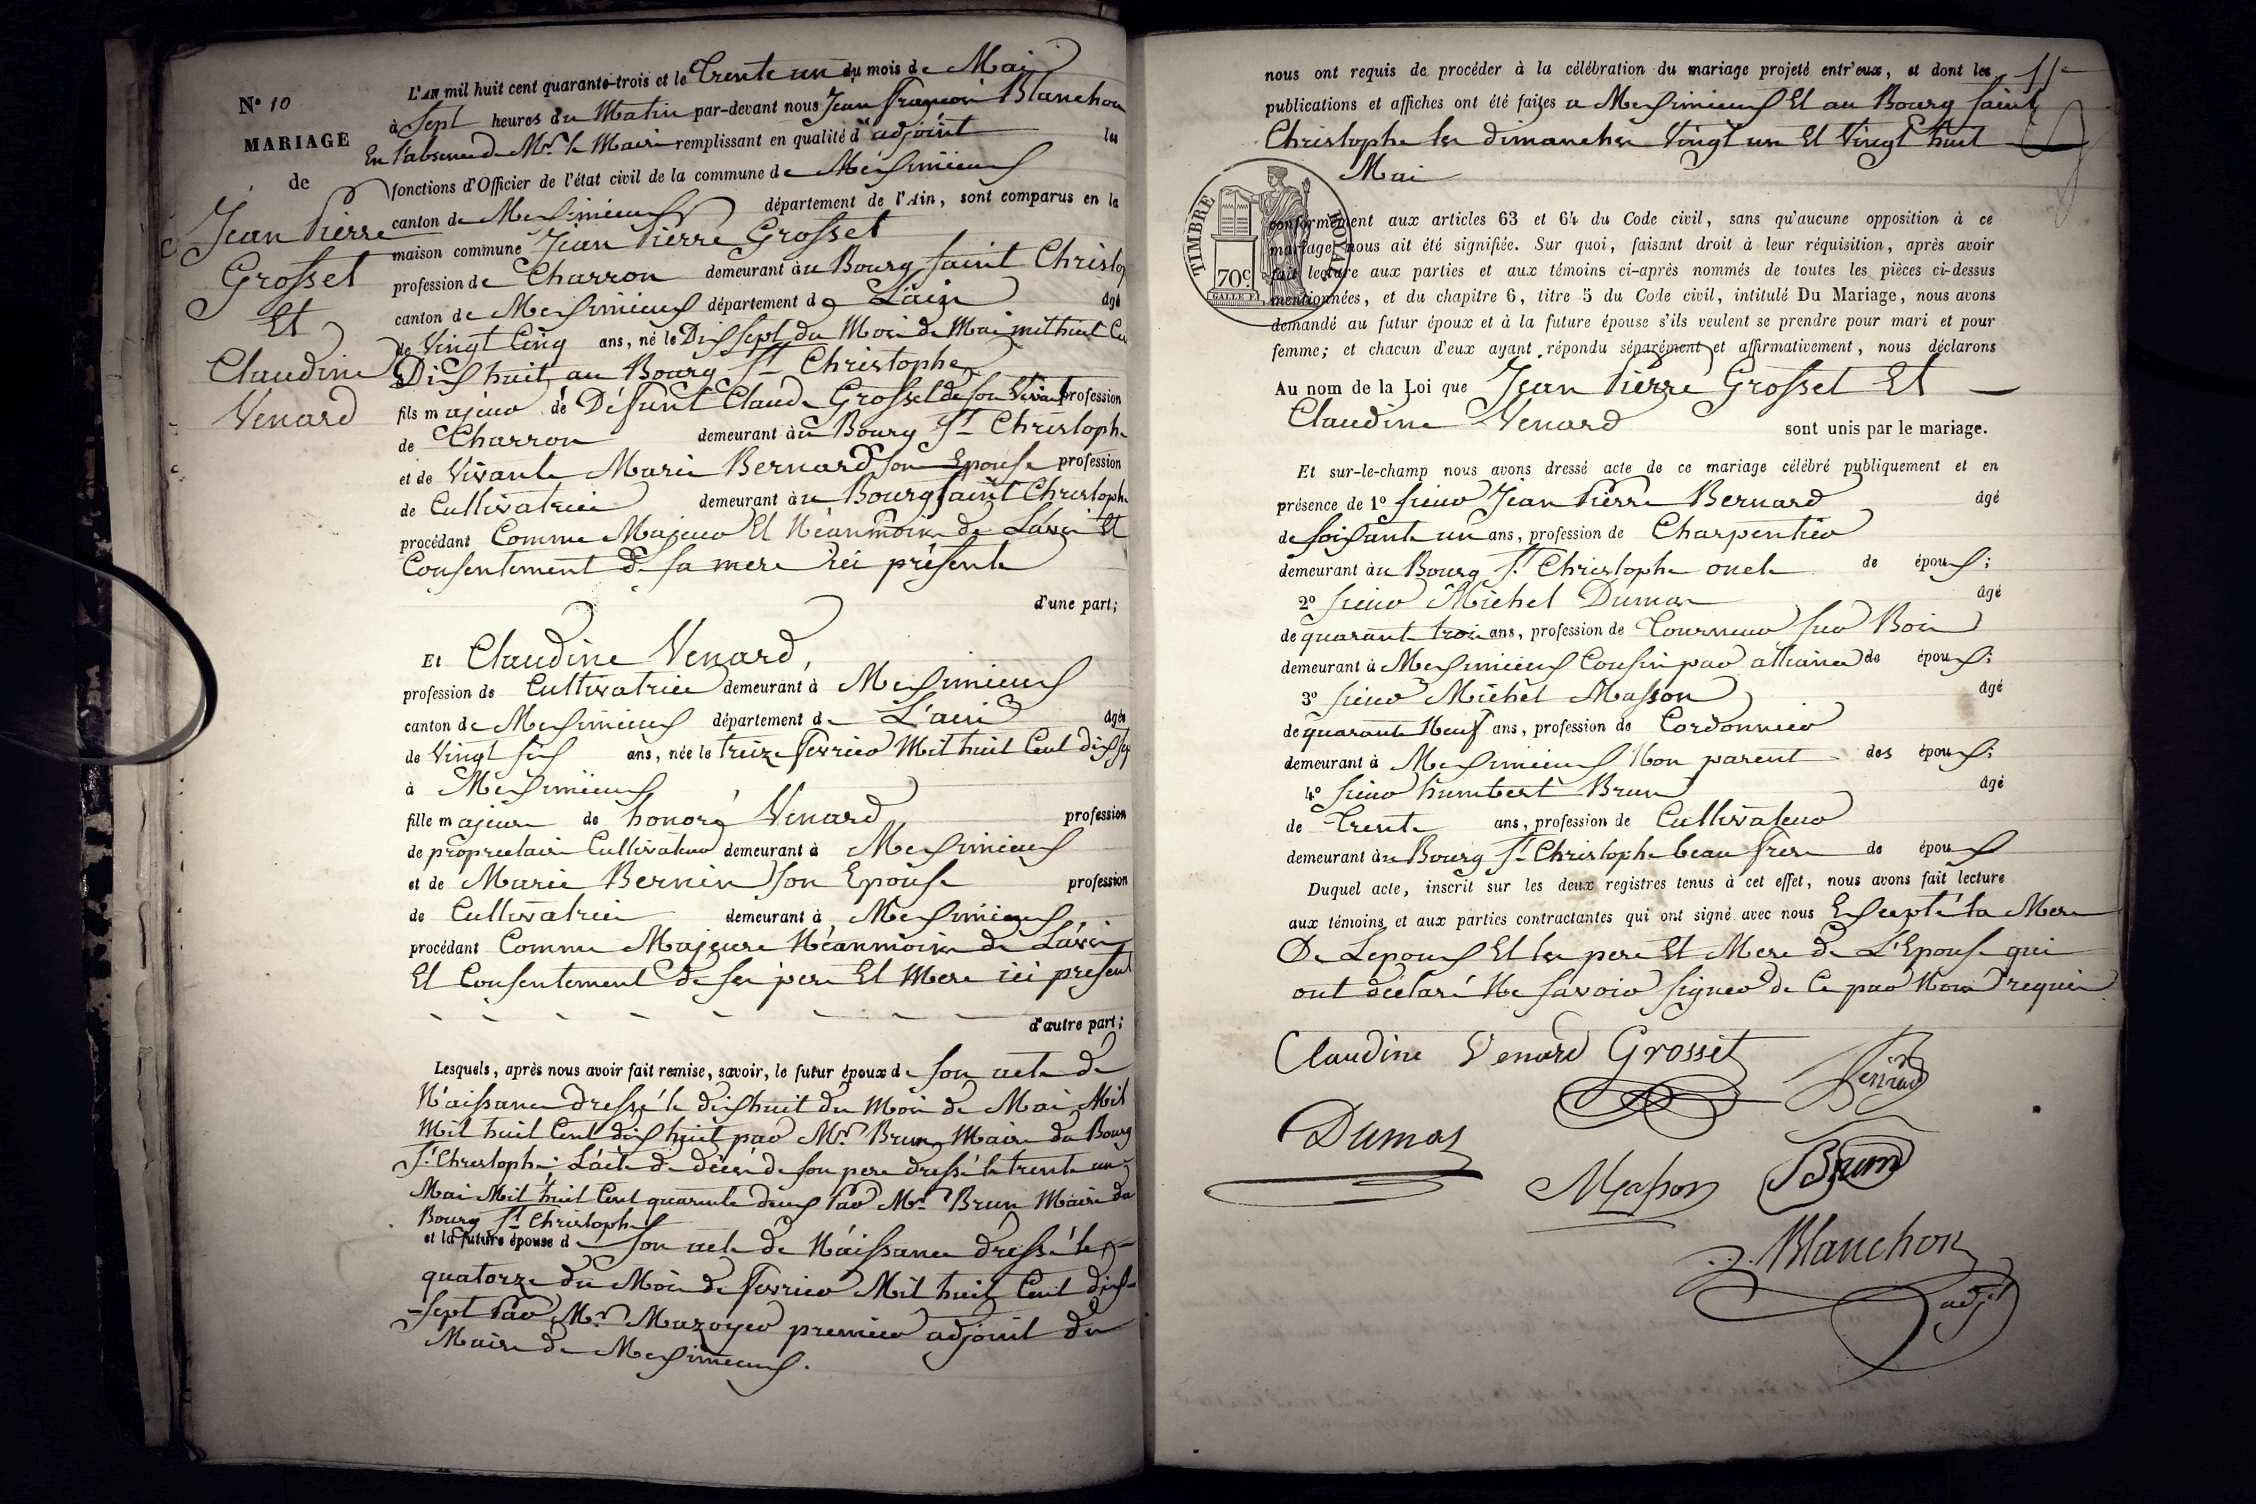 N° 10
MARIAGE
de
Jean Pierre
Grosset
Et
Claudine
Venard
L'AN mil huit cent quarante-trois et le Trente un du mois de Mai
à Sept heures du Matin par-devant nous Jean françois Blanchon
En l'absence de Mr. le Maire remplissant en qualité d'adjoint les
fonctions d'Officier de l'état civil de la commune de Méximieux
canton de Meximieux département de l'Ain, sont comparus en la
maison commune Jean Pierre Grosset
profession de Charron demeurant au Bourg saint Christo
canton de Meximieux département de L'ain âgé
de Vingt Cinq ans, né le Dix sept du Mois de Mai mil huit Ce
Dix huit au Bourg St Christophe
fils majeur de Défunt Claude Grosset de son Vivant profession
de Charron demeurant au Bourg St Christophe
et de Vivante Marie Bernard son Epouse profession
de Cultivatrice demeurant au Bourg saint Christophe
procédant Comme Majeur Et Néanmoins de L'avis Et
Consentement de sa mere ici présente
d'une part;
Et Claudine Venard,
profession de Cultivatrice demeurant à Meximieux
canton de Meximieux département de L'ain âgée
de Vingt six ans, née le treize fevrier Mil huit Cent dix sep
à Meximieux
fille majeure de honoré Venard profession
de proprietaire Cultivateur demeurant à Meximieux
et de Marie Bernin son Epouse profession
de Cultivatrice demeurant à Meximieux
procédant Comme Majeure Néanmoins de L'avis
Et Consentement de ses pere Et Mere ici present
d'autre part;
Lesquels, après nous avoir fait remise, savoir, le futur époux de son acte de
Naissance dressé le dix huit du Mois de Mai Mil
Mil huit Cent dix huit par Mr. Brun Maire du Bourg
St Christophe; L'acte de décès de son pere dressé le trente un
Mai Mil huit Cent quarante deux Par Mr. Brun Maire du
Bourg St Christophe
et la future épouse de son acte de Naissance dressé le
quatorze du Mois de fevrier Mil huit Cent dix-
-sept Par Mr. Mazoyer premier adjoint du
Maire de Meximieux.
nous ont requis de procéder à la célébration du mariage projeté entr'eux, et dont les
publications et affiches ont été faites a Meximieux Et au Bourg saint
Christophe les dimanches Vingt un Et Vingt huit
Mai
TIMBRE ROYAL
70 c.
conformément aux articles 63 et 64 du Code civil, sans qu'aucune opposition à ce
mariage nous ait été signifiée. Sur quoi, faisant droit à leur réquisition, après avoir
fait lecture aux parties et aux témoins ci-après nommés de toutes les pièces ci-dessus
mentionnées, et du chapitre 6, titre 5 du Code civil, intitulé Du Mariage, nous avons
demandé au futur époux et à la future épouse s'ils veulent se prendre pour mari et pour
femme; et chacun d'eux ayant répondu séparément et affirmativement, nous déclarons
Au nom de la Loi que Jean Pierre Grosset Et
Claudine Venard sont unis par le mariage.
Et sur-le-champ nous avons dressé acte de ce mariage célébré publiquement et en
présence de 1° sieur Jean Pierre Bernard âgé
de soixante un ans, profession de Charpentier
demeurant au Bourg St Christophe oncle de époux;
2° sieur Michel Dumas âgé
de quarante trois ans, profession de Tourneur sur Bois
demeurant à Meximieux Cousin par alliance de époux;
3° sieur Michel Masson âgé
de quarante Neuf ans, profession de Cordonnier
demeurant à Meximieux Non parent des époux;
4° sieur humbert Brun âgé
de Trente ans, profession de Cultivateur
demeurant au Bourg St Christophe beau frere de époux
Duquel acte, inscrit sur les deux registres tenus à cet effet, nous avons fait lecture
aux témoins et aux parties contractantes qui ont signé avec nous Excepté la Mere
De Lepoux Et les pere Et Mere de L'Epouse qui
ont declaré Ne savoir signer de Ce par Nous requis
Claudine Venard Grosset
Bernard
Dumas
Masson
Brun
Blanchon
adjt